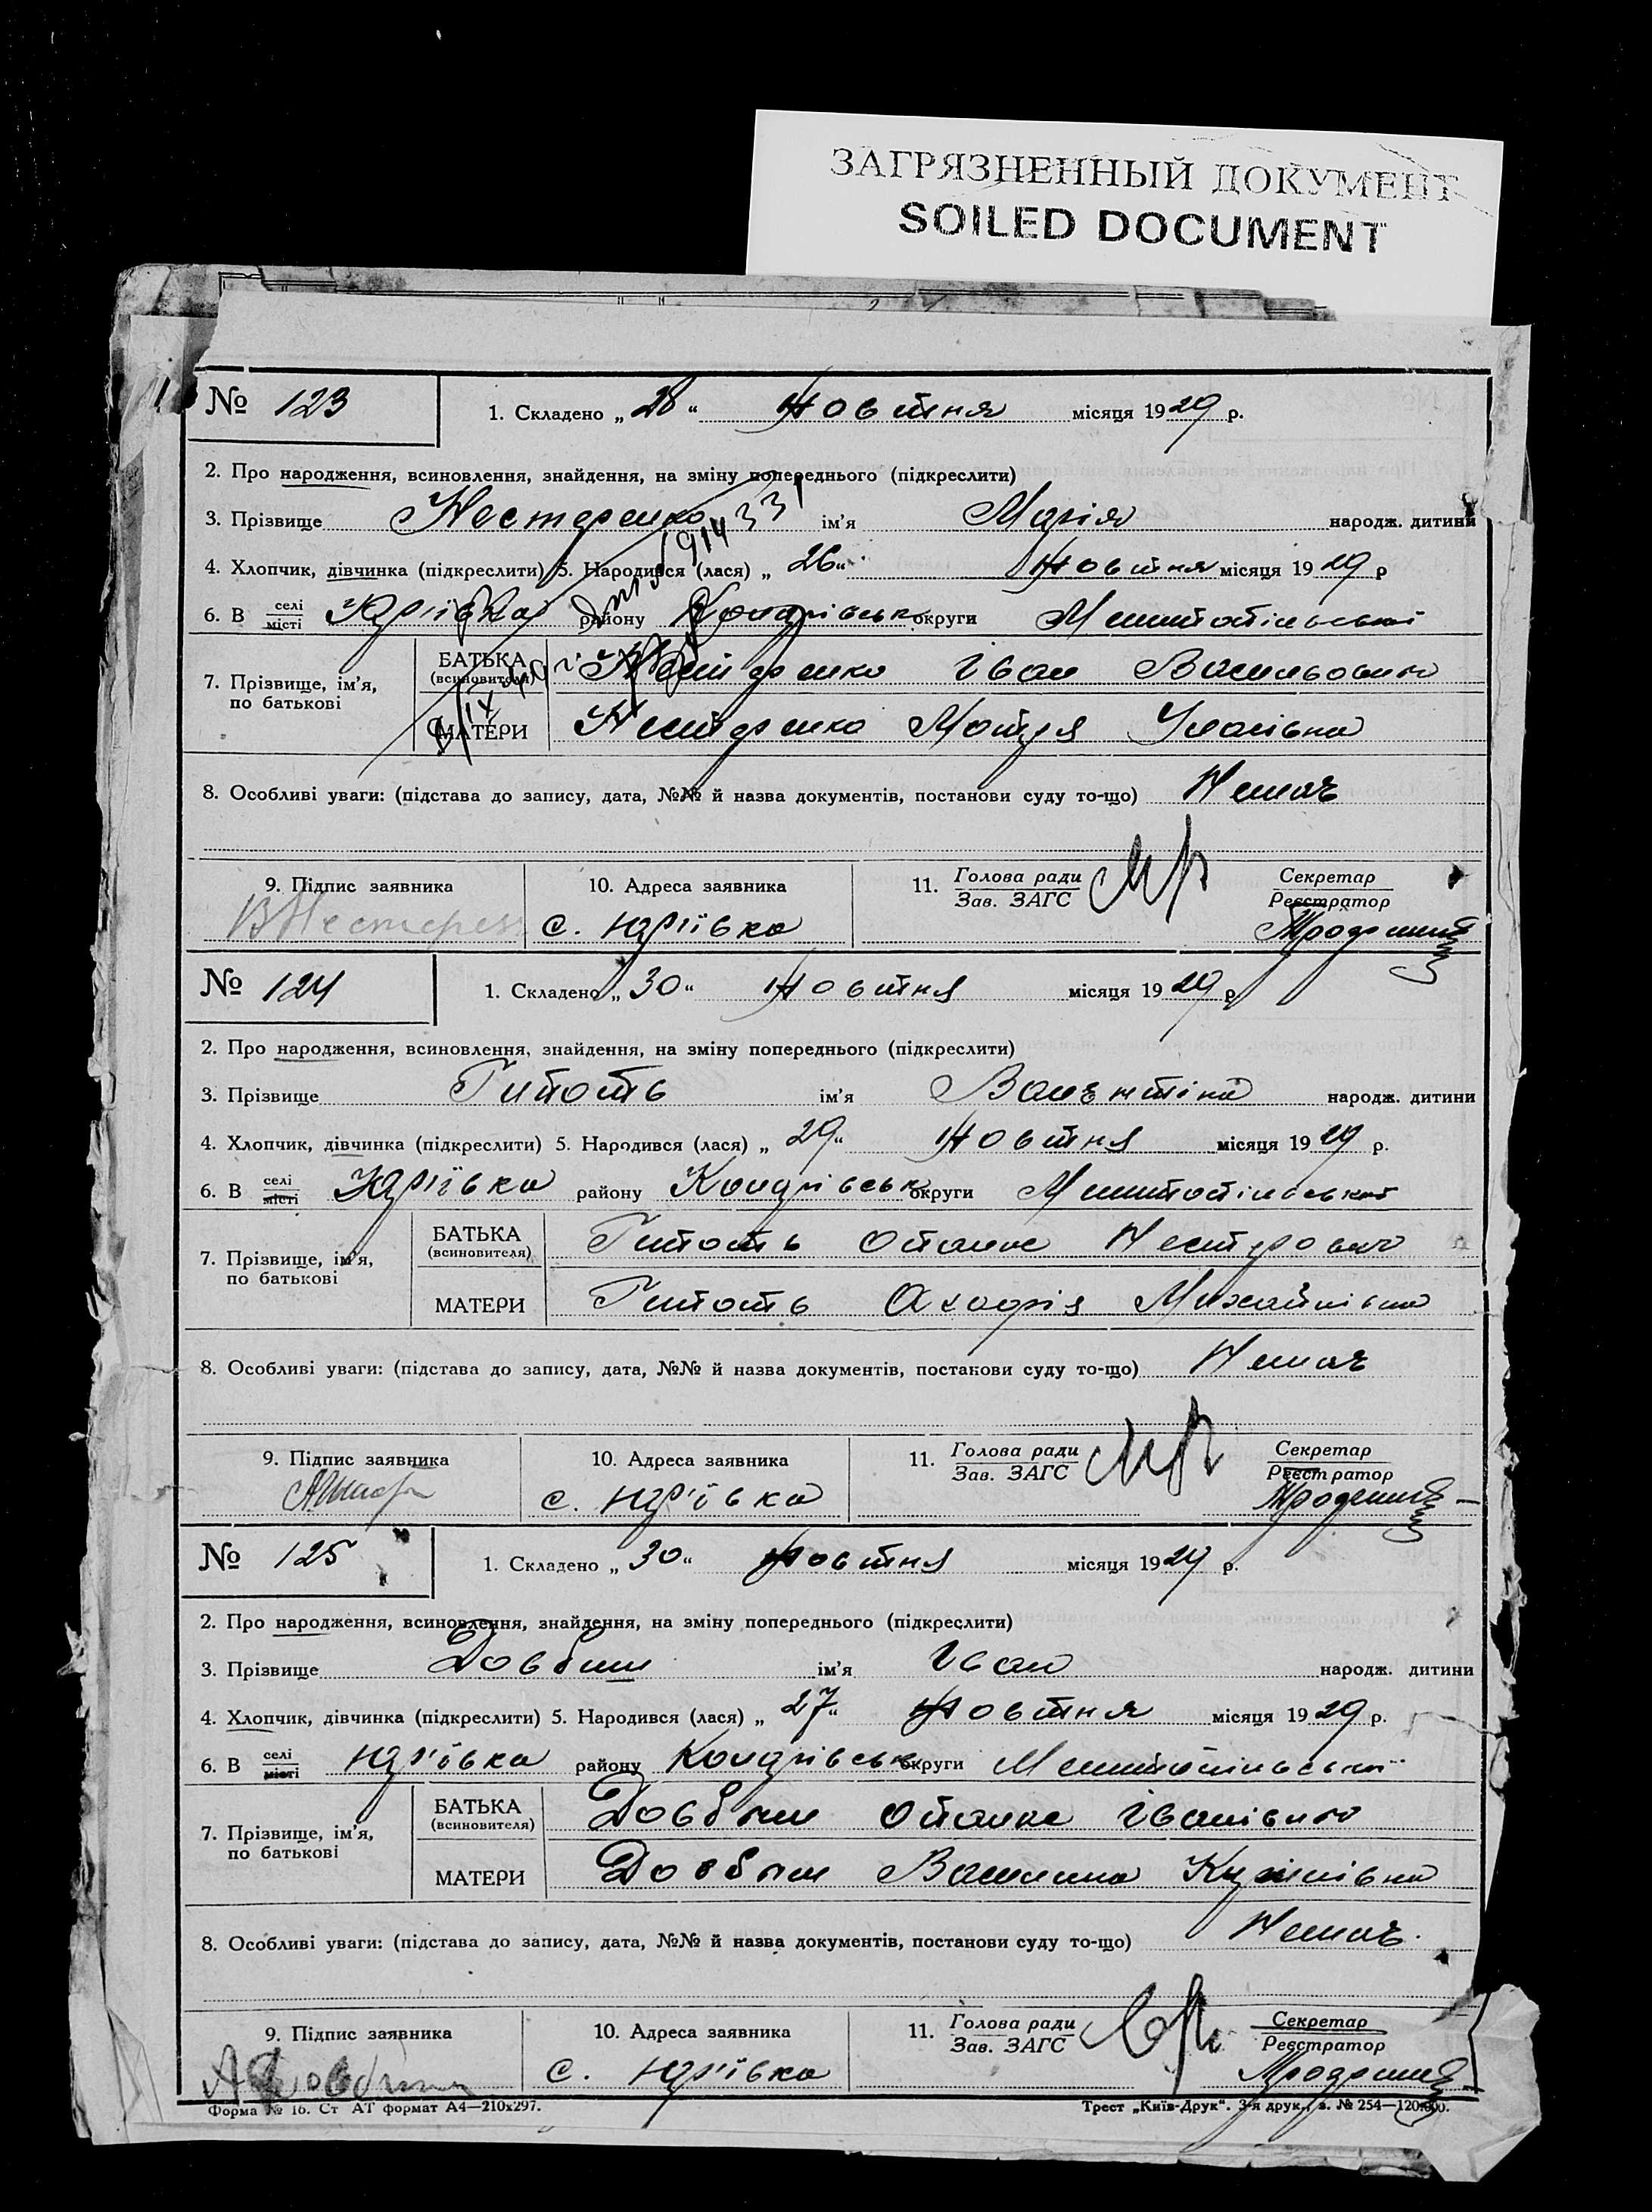 ЗАГРЯЗНЕННЫЙ ДОКУМЕНТ
SOILED DOCUMENT
№ 123
1. Складено „ 28 “ Жовтня місяця 1929 р.
2. Про народження, всиновлення, знайдення, на зміну попереднього (підкреслити)
3. Прізвище Нестеренко ім'я Марія народж. дитини
4. Хлопчик, дівчинка (підкреслити) 5. Народився (лася) „ 26 “ Жовтня місяця 1929 р
6. В селі місті Юр'ївка району округи Мелітопільської
7. Прізвище, ім'я, по батькові
БАТЬКА (всиновителя) Нестеренко Іван Васильович
МАТЕРИ Нестеренко Мотря
8. Особливі уваги: (підстава до запису, дата, №№ й назва документів, постанови суду то-що) Немає
9. Підпис заявника 10. Адреса заявника 11. Голова ради Зав. ЗАГС Секретар Реєстратор
с. Юр'ївка
№ 124
1. Складено „ 30 “ Жовтня місяця 1929 р
2. Про народження, всиновлення, знайдення, на зміну попереднього (підкреслити)
3. Прізвище ім'я Валентіна народж. дитини
4. Хлопчик, дівчинка (підкреслити) 5. Народився (лася) „ 29 “ Жовтня місяця 1929 р.
6. В селі місті Юр'ївка району округи Мелітопільської
7. Прізвище, ім'я, по батькові
БАТЬКА (всиновителя) Опанас Нестерович
МАТЕРИ Михайлівна
8. Особливі уваги: (підстава до запису, дата, №№ й назва документів, постанови суду то-що) Немає
9. Підпис заявника 10. Адреса заявника 11. Голова ради Зав. ЗАГС Секретар Реєстратор
с. Юр'ївка
№ 125
1. Складено „ 30 “ жовтня місяця 1929 р.
2. Про народження, всиновлення, знайдення, на зміну попереднього (підкреслити)
3. Прізвище Довбиш ім'я Іван народж. дитини
4. Хлопчик, дівчинка (підкреслити) 5. Народився (лася) „ 27 “ жовтня місяця 1929 р.
6. В селі місті Юр'ївка району округи Мелітопільської
7. Прізвище, ім'я, по батькові
БАТЬКА (всиновителя) Довбиш Опанас Іванівич
МАТЕРИ Довбиш Василина
8. Особливі уваги: (підстава до запису, дата, №№ й назва документів, постанови суду то-що) Немає.
9. Підпис заявника 10. Адреса заявника 11. Голова ради Зав. ЗАГС Секретар Реєстратор
с. Юр'ївка
Форма № 16. Ст АТ формат А4—210х297. Трест „Київ-Друк“. 3-я друк., з. № 254—120.000.